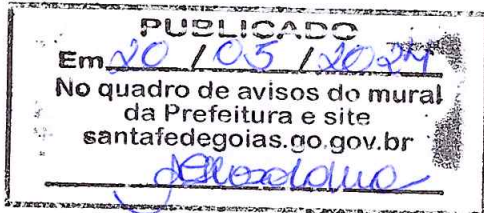 PUBLICADO
Em 20 / 05 / 2024
No quadro de avisos do mural
da Prefeitura e site
santafedegoias.go.gov.br